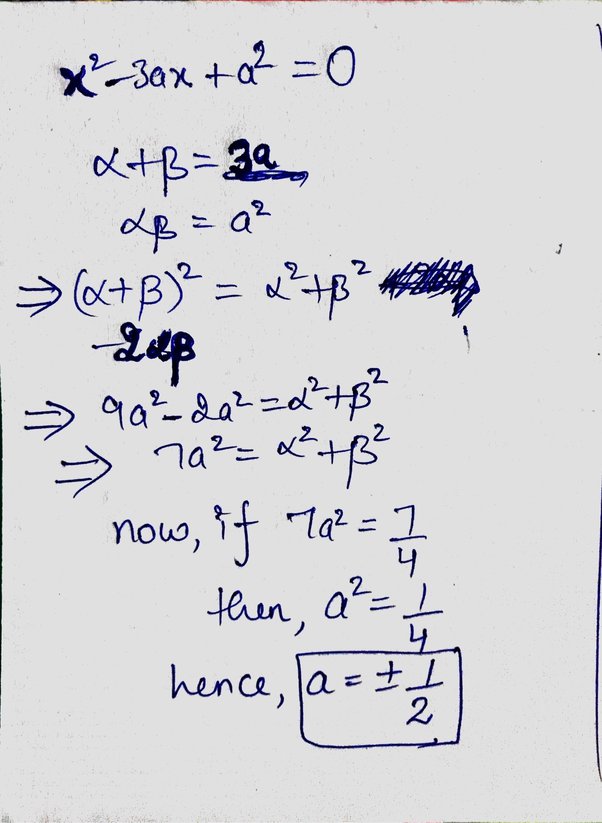 x² - 3ax + a² = 0
α + β = 3a
αβ = a²
⇒ (α + β)² = α² + β²
- 2αβ
⇒ 9a² - 2a² = α² + β²
⇒ 7a² = α² + β²
now, if 7a² = 7/4
then, a² = 1/4
hence, a = ± 1/2